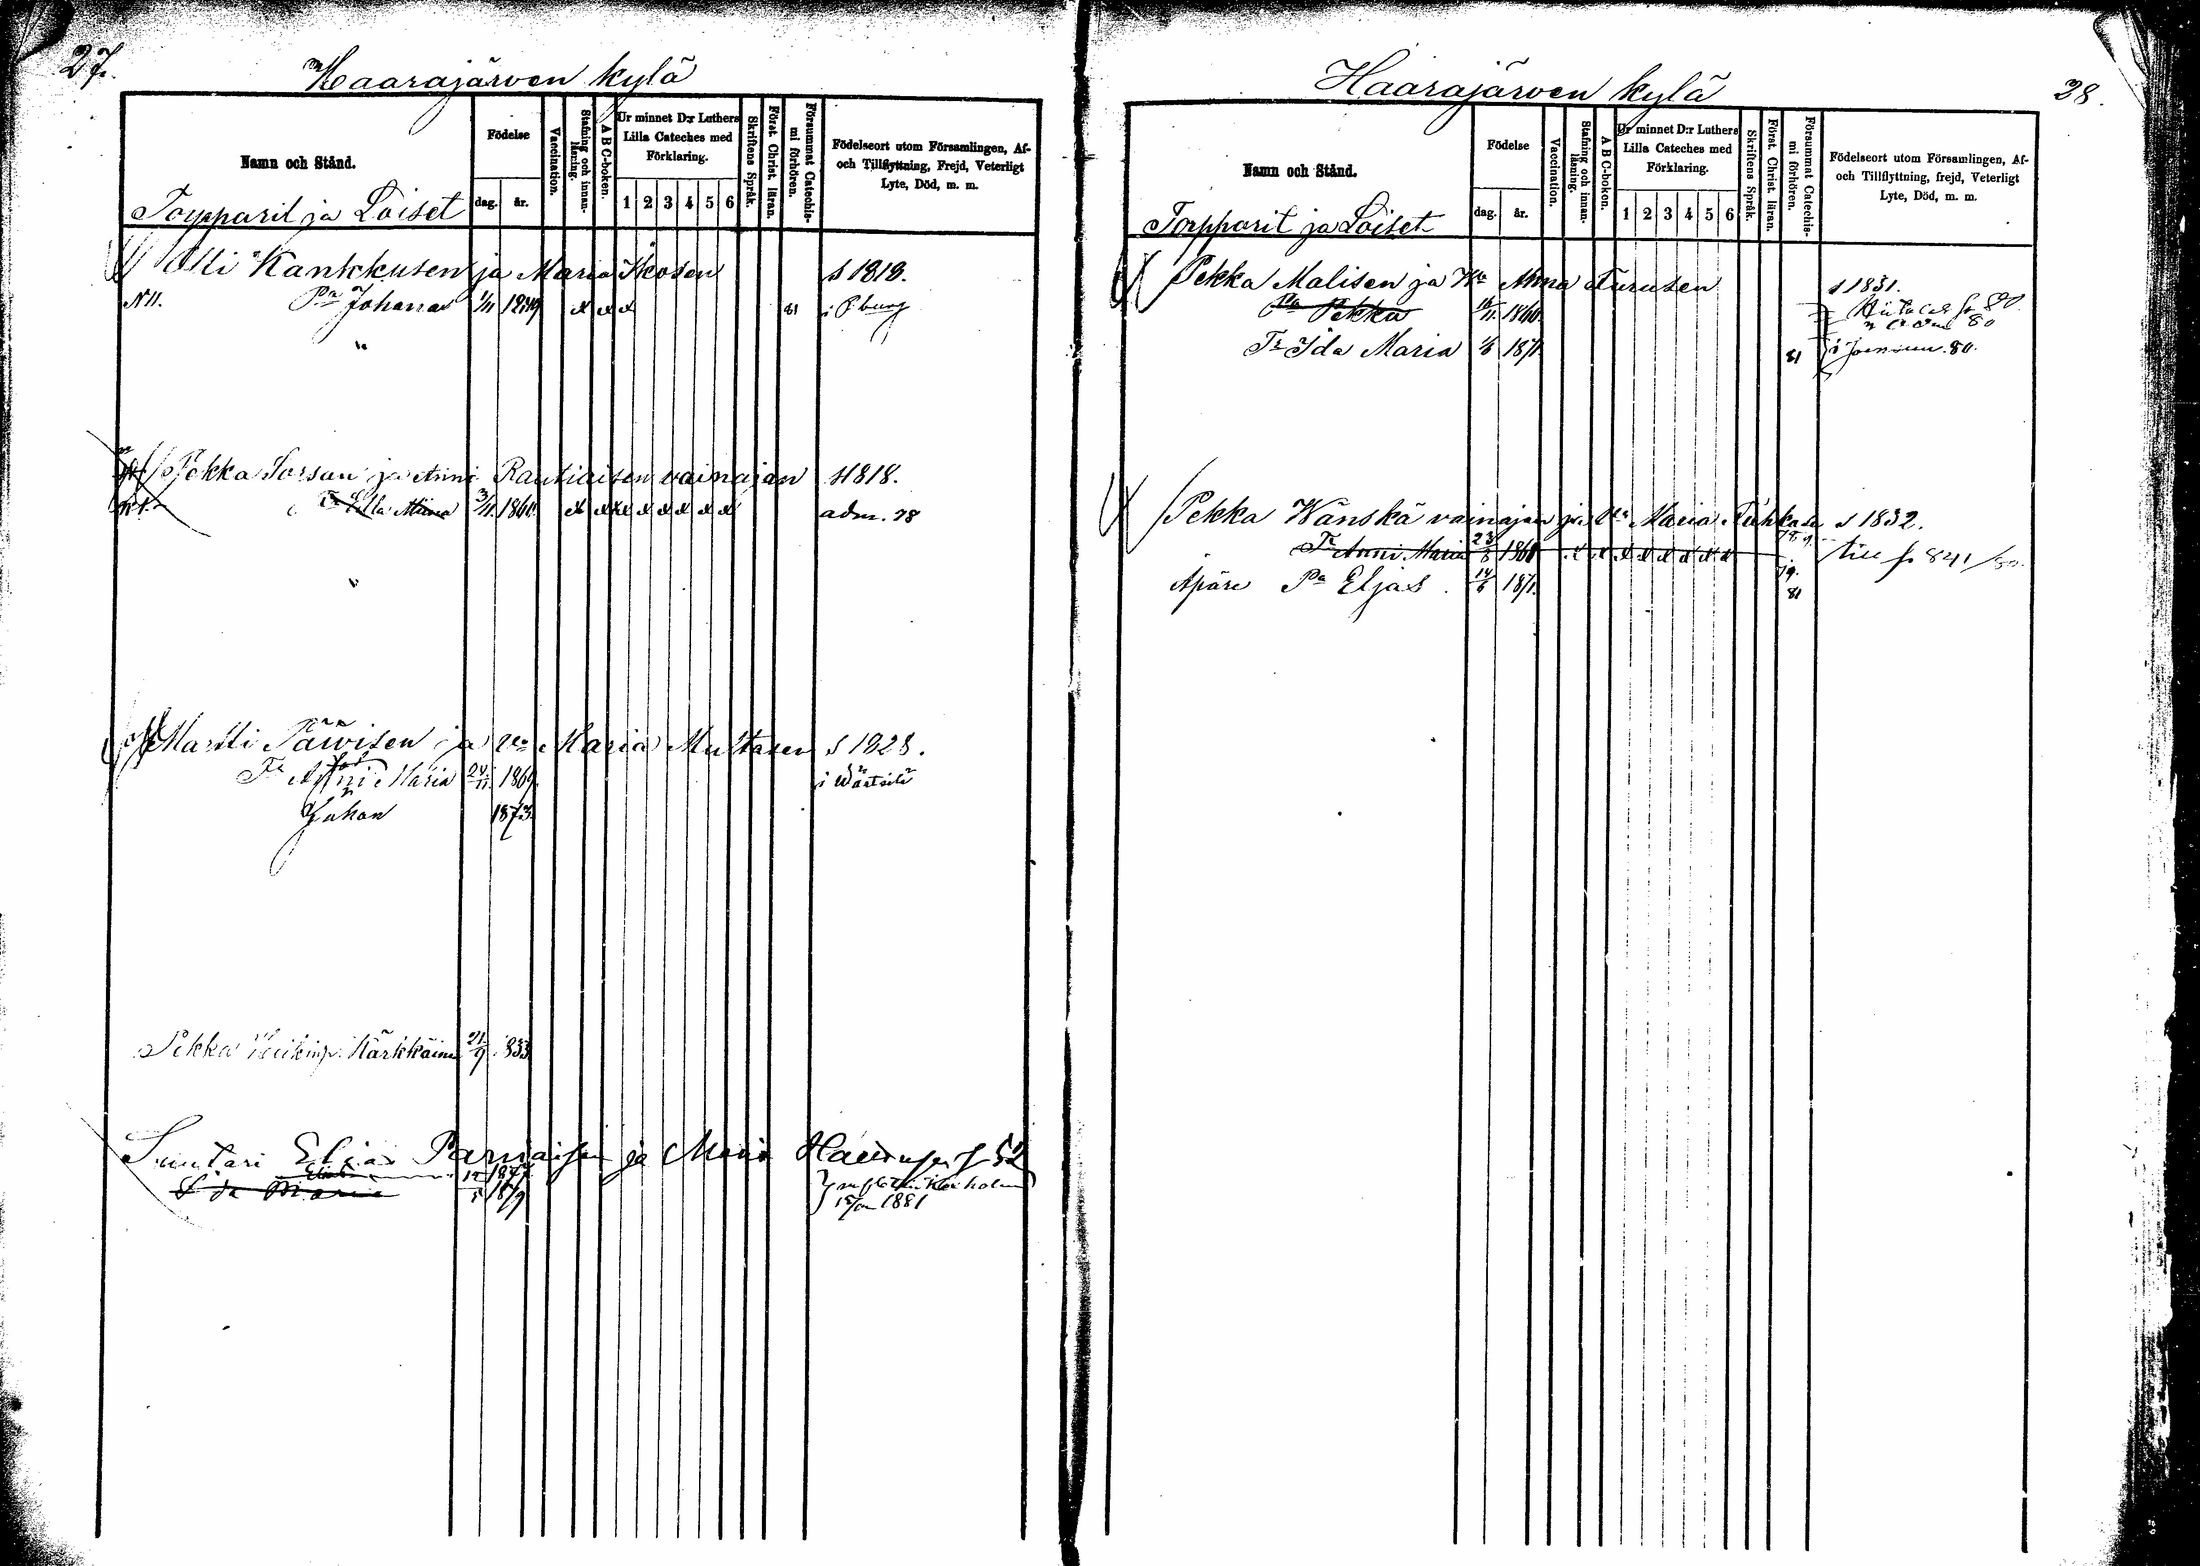 27.
Haarajärven kylä
Namn och Stånd.
Födelse
dag.
år.
Vaccination.
Stafning och innan-läsning.
A B C-boken.
Ur minnet D:r Luthers Lilla Cateches med Förklaring.
1 2 3 4 5 6
Skriftens Språk.
Först. Christ. läran.
Försummat Catechis-mi förhören.
Födelseort utom Församlingen, Af- och Tillflyttning, Frejd, Veterligt Lyte, Död, m. m.
Torpparit ja Loiset
Olli Kankkusen ja Maria Ikosen s 1818.
N 11. Pa Johannes 1/11 x x x 81 i Pburg
Pekka Sorsan ja Anni Rautiaisen vainajan s 1818.
Ella Miina 3/11 1860. x x x x x x x x adm. 78
Martti Parvisen ja Maria Mustosen s 1828.
Tr Anni Maria 24/11 1869. i Wärtsilä
Juhan 1873.
Pekka Kärkkäinen 21/9 833
Suutari Elias Parviaisen ja Maria s 52
1877
Ida Maria 1879
1881
28.
Haarajärven kylä
Namn och Stånd.
Födelse
dag.
år.
Vaccination.
Stafning och innan-läsning.
A B C-boken.
Ur minnet D:r Luthers Lilla Cateches med Förklaring.
1 2 3 4 5 6
Skriftens Språk.
Först. Christ. läran.
Försummat Catechis-mi förhören.
Födelseort utom Församlingen, Af- och Tillflyttning, frejd, Veterligt Lyte, Död, m. m.
Torpparit ja Loiset
Pekka Malisen ja Wa Anna Turusen s 1831.
Pa Pekka 16/11 1860. 80
Tr Ida Maria 1/6 1871. 81 i Joensuu. 80.
Pekka Wänskä vainajan ja Maria s 1832.
Tr Anni Maria 23/8 1860 x x x x x x x x till s 841/80
Apäre Pa Eljas 14/6 1871. 81